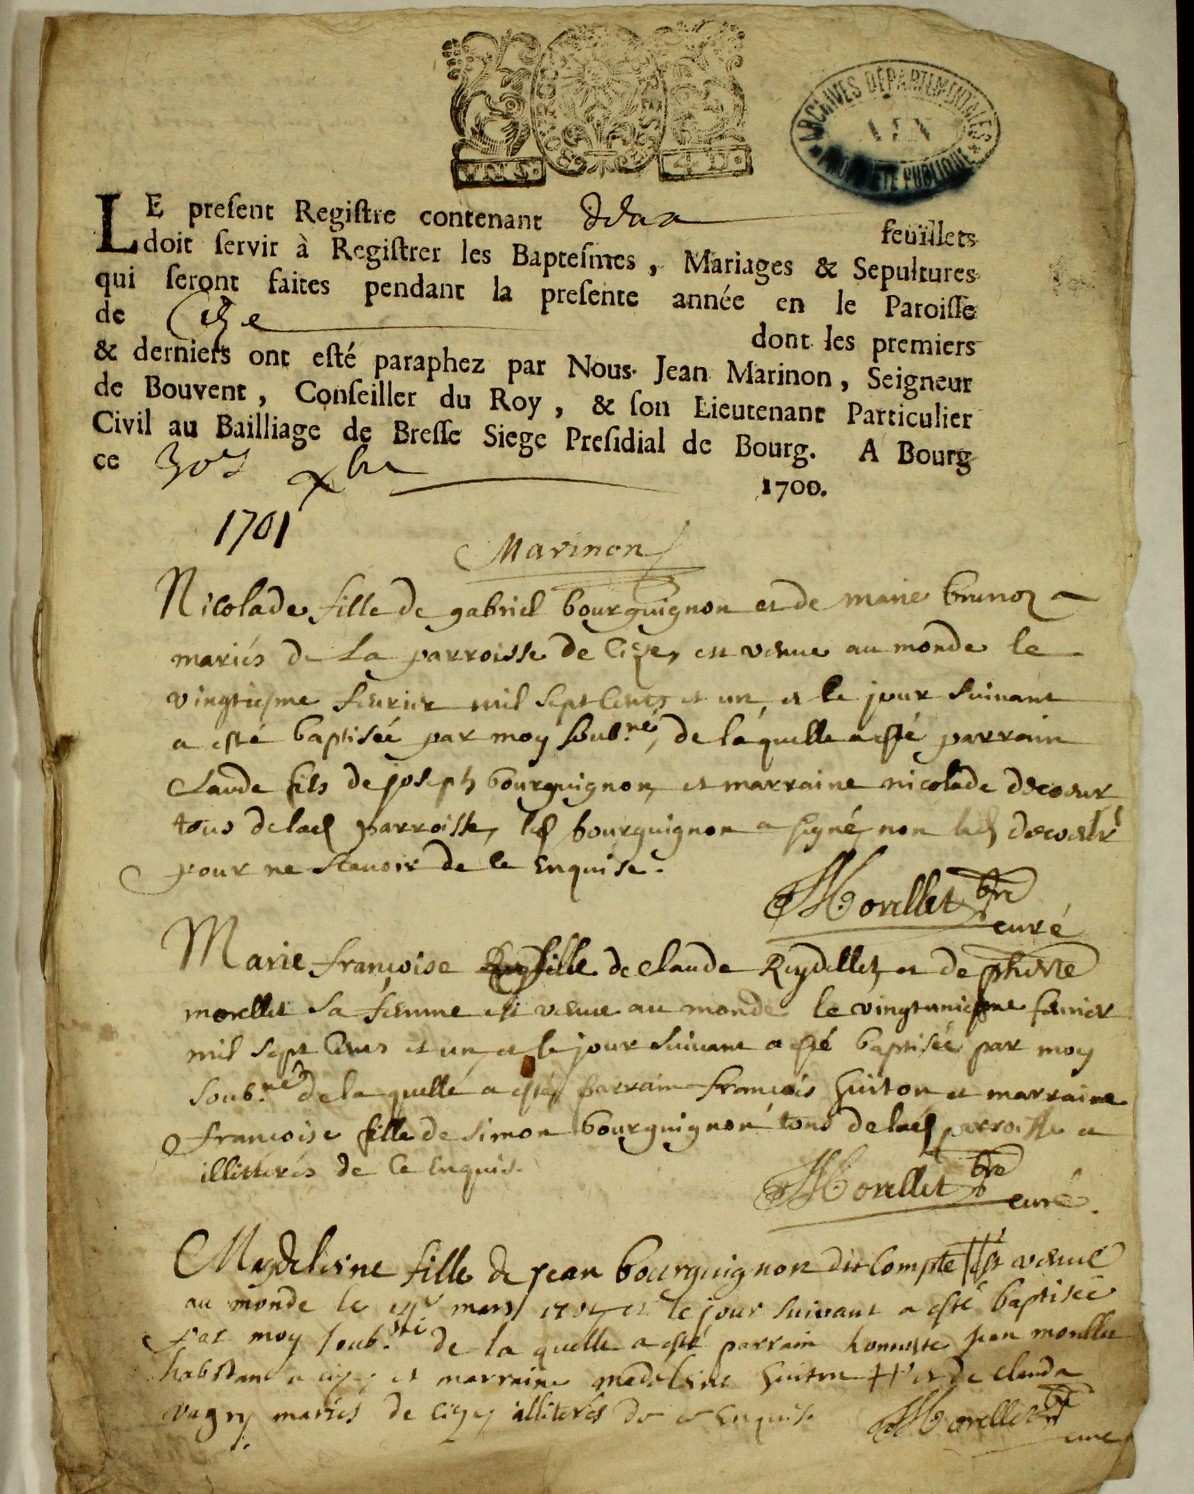 ARCHIVES DÉPARTEMENTALES
AIN
PROPRIÉTÉ PUBLIQUE
LE present Registre contenant feuillets
doit servir à Registrer les Baptesmes, Mariages & Sepultures
qui seront faites pendant la presente année en le Paroisse
de Cize dont les premiers
& derniers ont esté paraphez par Nous Jean Marinon, Seigneur
de Bouvent, Conseiller du Roy, & son Lieutenant Particulier
Civil au Bailliage de Bresse Siege Presidial de Bourg. A Bourg
ce 30e xbre 1700.
1701
Marinon
Nicolade fille de gabriel bourguignon et de marie brunoz
mariés de La parroisse de Cize, est venue au monde le
vingtiesme feurier mil sept Cents et un, et le jour suivant
a esté baptisée par moy soub.né, de laquelle a esté parrain
claude fils de joseph bourguignon, et marraine nicolade decoeur
tous de lad parroisse, led bourguignon a signé, non lad decoeur
pour ne scauoir de ce enquise.
Morellet bre
curé
Marie françoise fille de claude Reydellet, et de phirte
morellet sa femme est venue au monde le vingtuniesme feurier
mil sept Cents et un, et le jour suivant a esté baptisée par moy
soub.né de laquelle a esté parrain françois Guiton et marraine
françoise fille de simon bourguignon tous de lad parroisse
illitterés de Ce Enquis.
Morellet bre
curé.
Magdeleine fille de jean bourguignon dit Compte # est venue
au monde le mars et le jour suivant a esté baptisée
par moy soub. de la quelle a esté parrain honneste jean morellet
habitant a cize, et marraine madeleine Guiton # et de clauda
mariés de cize, illiterés de ce Enquis
Morellet bre
curé